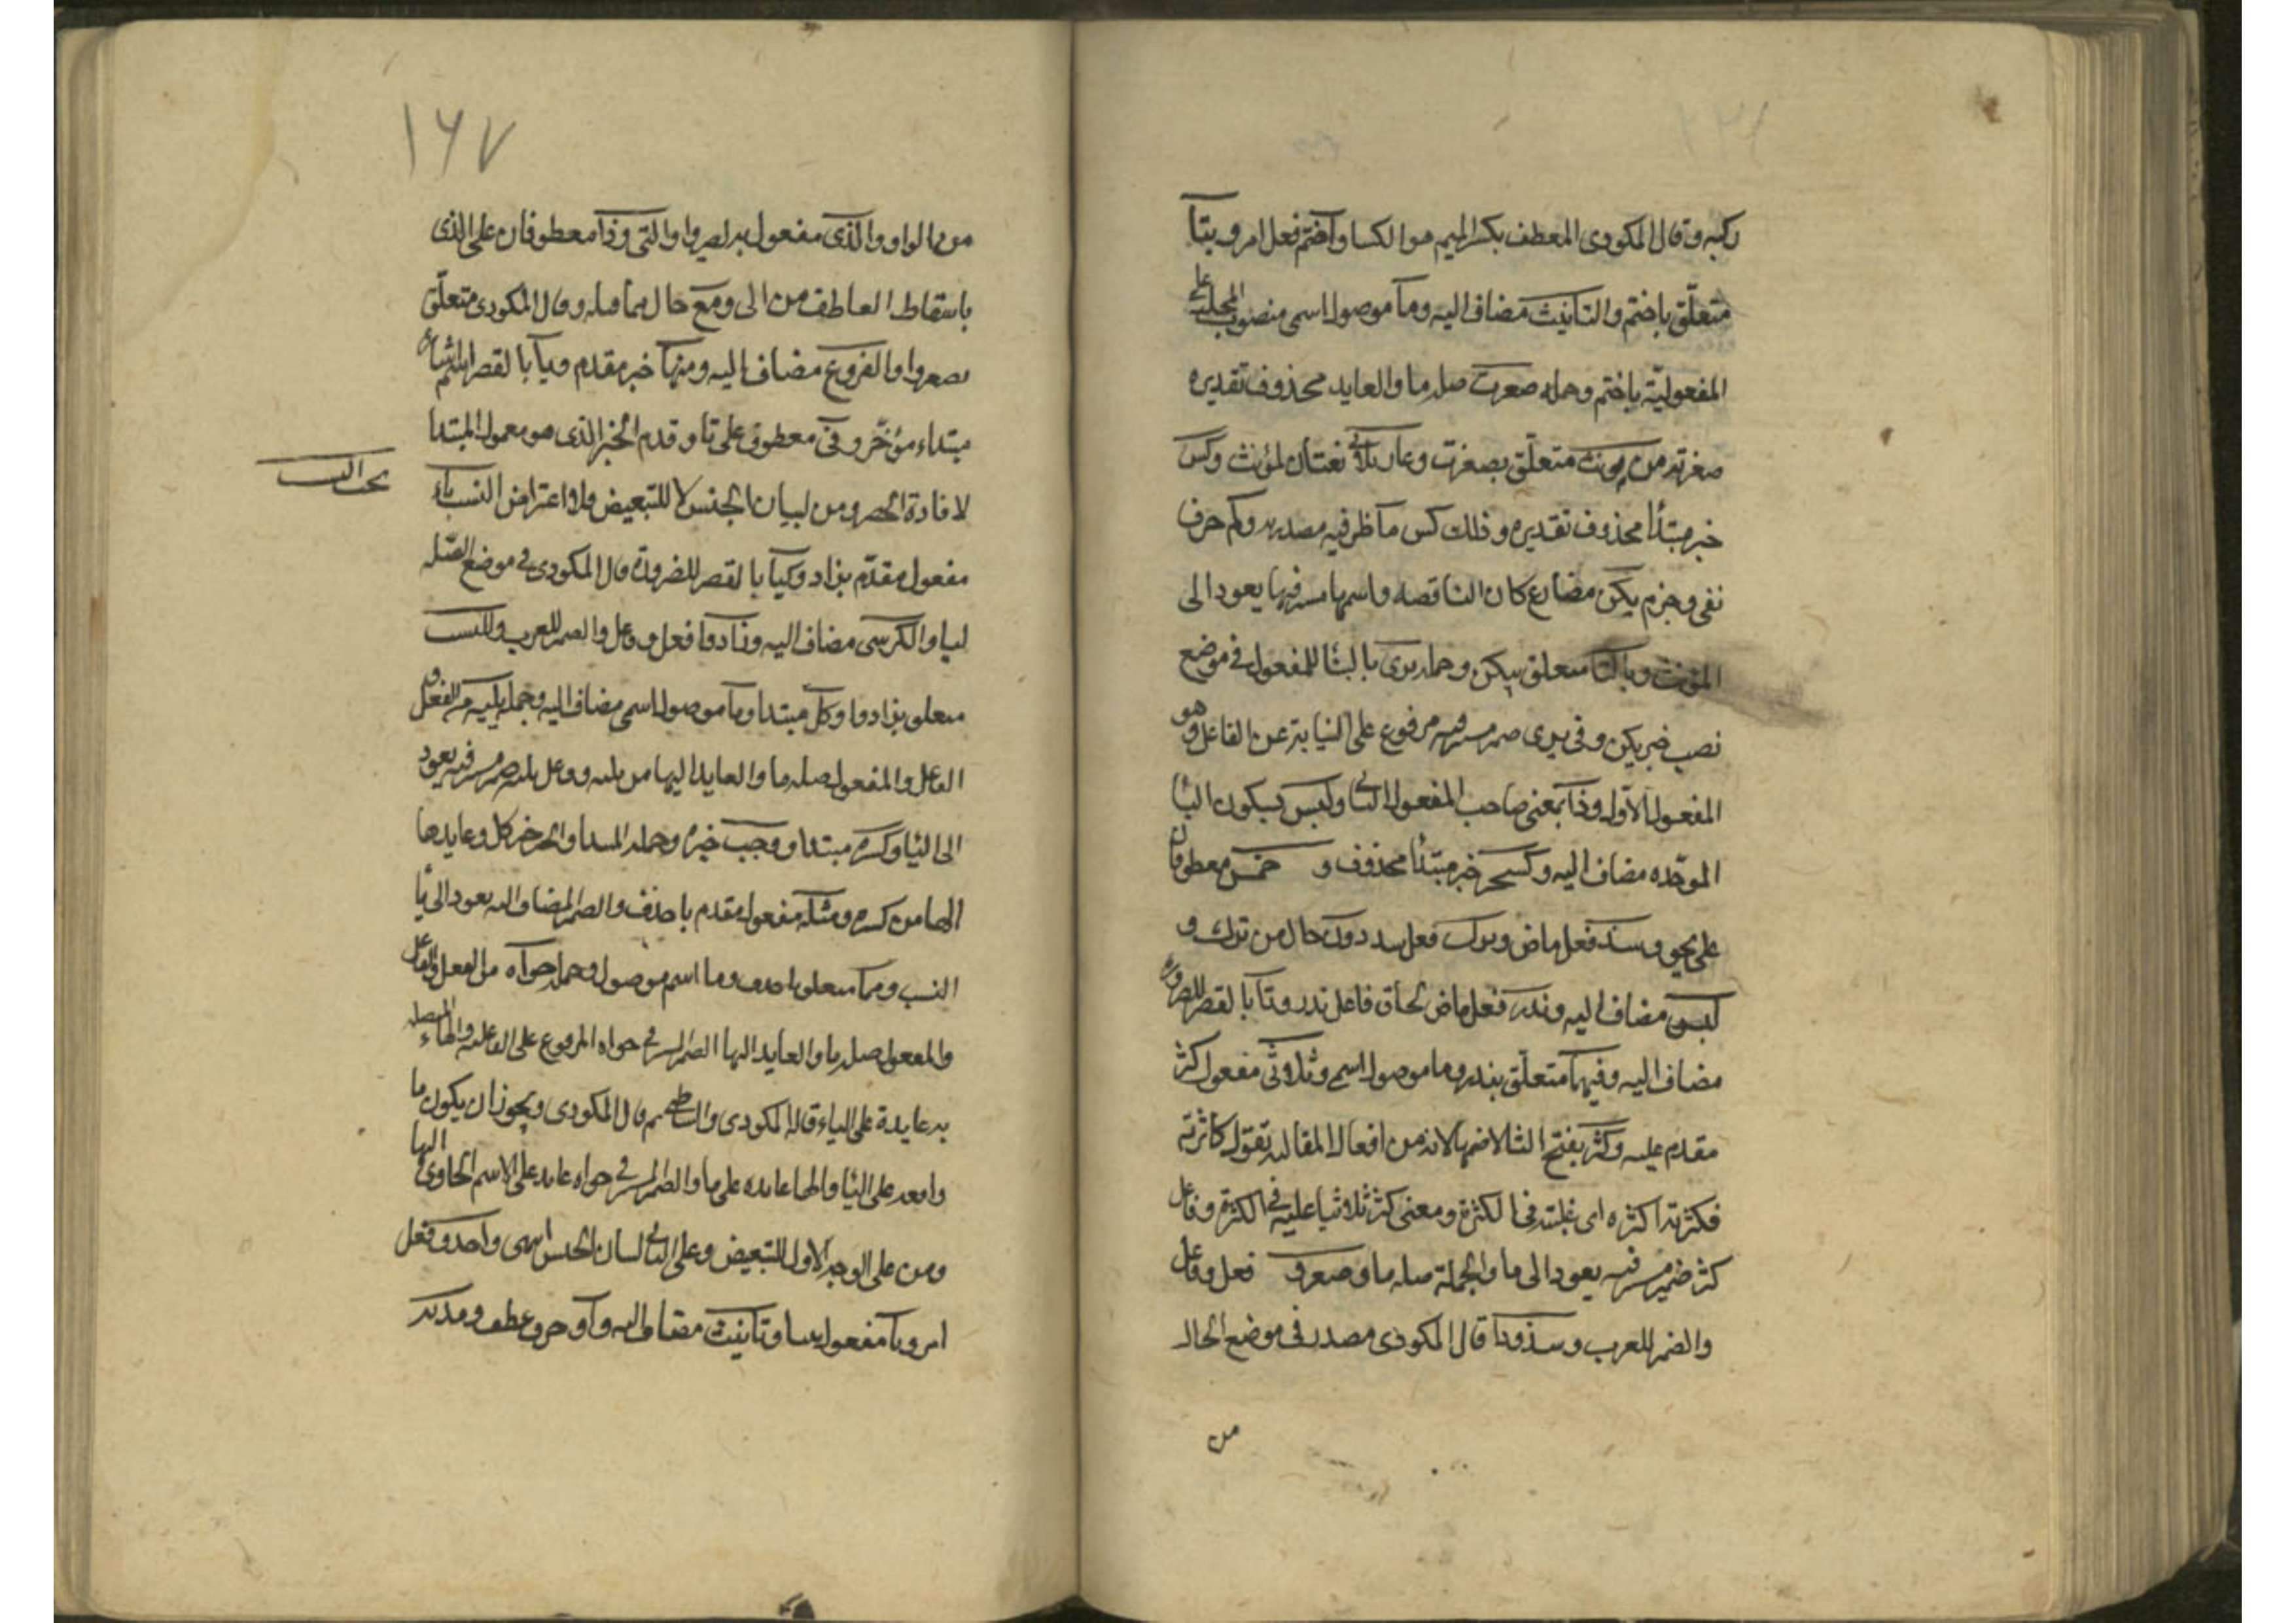 ركبه وقال المكودى المعطف بكسر الميم هو الكسا واختم فعل امر وبتا
متعلّق باختم والتانيث مضاف اليه وما موصول اسمى منصوب المحل على
المفعوليّة باختم وجملة صغرت صلة ما والعايد محذوف تقديره
صغرته من مونث متعلّق بصغرت وعار ثلاثى نعتان لمؤنث وكسن
خبر مبتدأ محذوف تقديره وذلك كسن ما ظرفيه مصدريه ولم حرف
نفى وجزم يكن مضارع كان الناقصه واسمها مستتر فيها يعود الى
المؤنث وبالتا متعلق بيكن وجمله يرى بالبنا للمفعول فى موضع
نصب خبر يكن وفى يرى ضمير مستتر فيه مرفوع على النيابة عن الفاعل وهو
المفعول الاول وذا بمعنى صاحب المفعول الثانى ولبس بسكون البا
الموحّده مضاف اليه وكشجر خبر مبتدأ محذوف و خمس معطوفان
على نحو وشذ فعل ماض وترك فعل شذ دون حال من ترك و
لبس مضاف اليه وندر فعل ماض لحاق فاعل ندر وتا بالقصر للضرورة
مضاف اليه وفيما متعلّق بندر وما موصول اسمى وثلاثى مفعول كثر
مقدم عليه وكثر بفتح الثا لا ضمها لانه من افعال المغالبه تقول كاثرته
فكثرته اكثره اى غلبته فى الكثرة ومعنى كثر ثلاثيا غلبه فى الكثرة وفاعل
كثر ضمير مستتر فيه يعود الى ما والجملة صله ما وصغروا فعل وفاعل
والضمير للعرب وشذوذا قال المكودى مصدر فى موضع الحال
من
١٦٧
من الواو والذى مفعول بصغروا والتى وذا معطوفان على الذى
باسقاط العاطف من التى ومع حال مما قبله وقال المكودى متعلّق
بصغروا والفروع مضاف اليه ومنها خبر مقدم وتا بالقصر
مبتداء مؤخّر وفى معطوف على تا وقدم الخبر الذى هو معمول المبتدا
بحث النسب
لافادة الحصر ومن لبيان الجنس لا للتبعيض فلا اعتراض النسب ياء
مفعول مقدّم بزاد وكيا بالقصر للضرورة قال المكودى فى موضع الصّفه
ليا والكرسى مضاف اليه وزادوا فعل وفاعل والضمير للعرب وللنسب
متعلق بزادوا وكل مبتدا وما موصول اسمى مضاف اليه وجملة يليه من الفعل و
الفاعل والمفعول صله ما والعايد اليها من يليه وفاعل يليه ضمير مستتر فيه يعود
الى اليا وكسره مبتدا ووجب خبره وجملة المبتدا والخبر خبر كل وعايدها
الها من كسره ومثله مفعول مقدم باحذف والضمير المضاف اليه يعود الى يا
النسب ومما متعلق باحذف وما اسم موصول وجمله حواه من الفعل والفاعل
والمفعول صله ما والعايد اليها الضمير المستتر فى حواه المرفوع على الفاعلية والهاء المتصله
به عايدة على الياء قاله المكودى والشاطبى ثم قال المكودى ويجوز ان يكون ما
واقعه على اليا والها عايده على ما والضمير المستتر فى حواه عايد على الاسم الحاوى اليها
ومن على الوجه الاول للتبعيض وعلى الثانى لبيان الجنس انتهى واحذف فعل
امر وتا مفعول وتانيث مضاف اليه واو حرف عطف ومدته